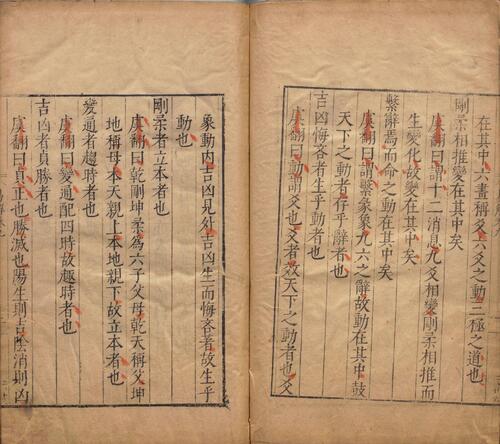 在其中六畫稱爻六爻之動三極之道也
剛柔相推變在其中矣
虞翻曰謂十二消息九六相變剛柔相推而
生變化故變在其中矣
繫辭焉而命之動在其中矣
虞翻曰謂繫彖象九六之辭故動在其中鼓
天下之動者存乎辭者也
吉凶悔吝者生乎動者也
虞翻曰動謂爻也爻者效天下之動者也爻
象動內吉凶見外吉凶生而悔吝著故生乎
動也
剛柔者立本者也
虞翻曰乾剛坤柔為六子父母乾天稱父坤
地稱母本天親上本地親下故立本者也
變通者趨時者也
虞翻曰變通配四時故趨時者也
吉凶者貞勝者也
虞翻曰貞正也勝滅也陽生則吉陰消則凶